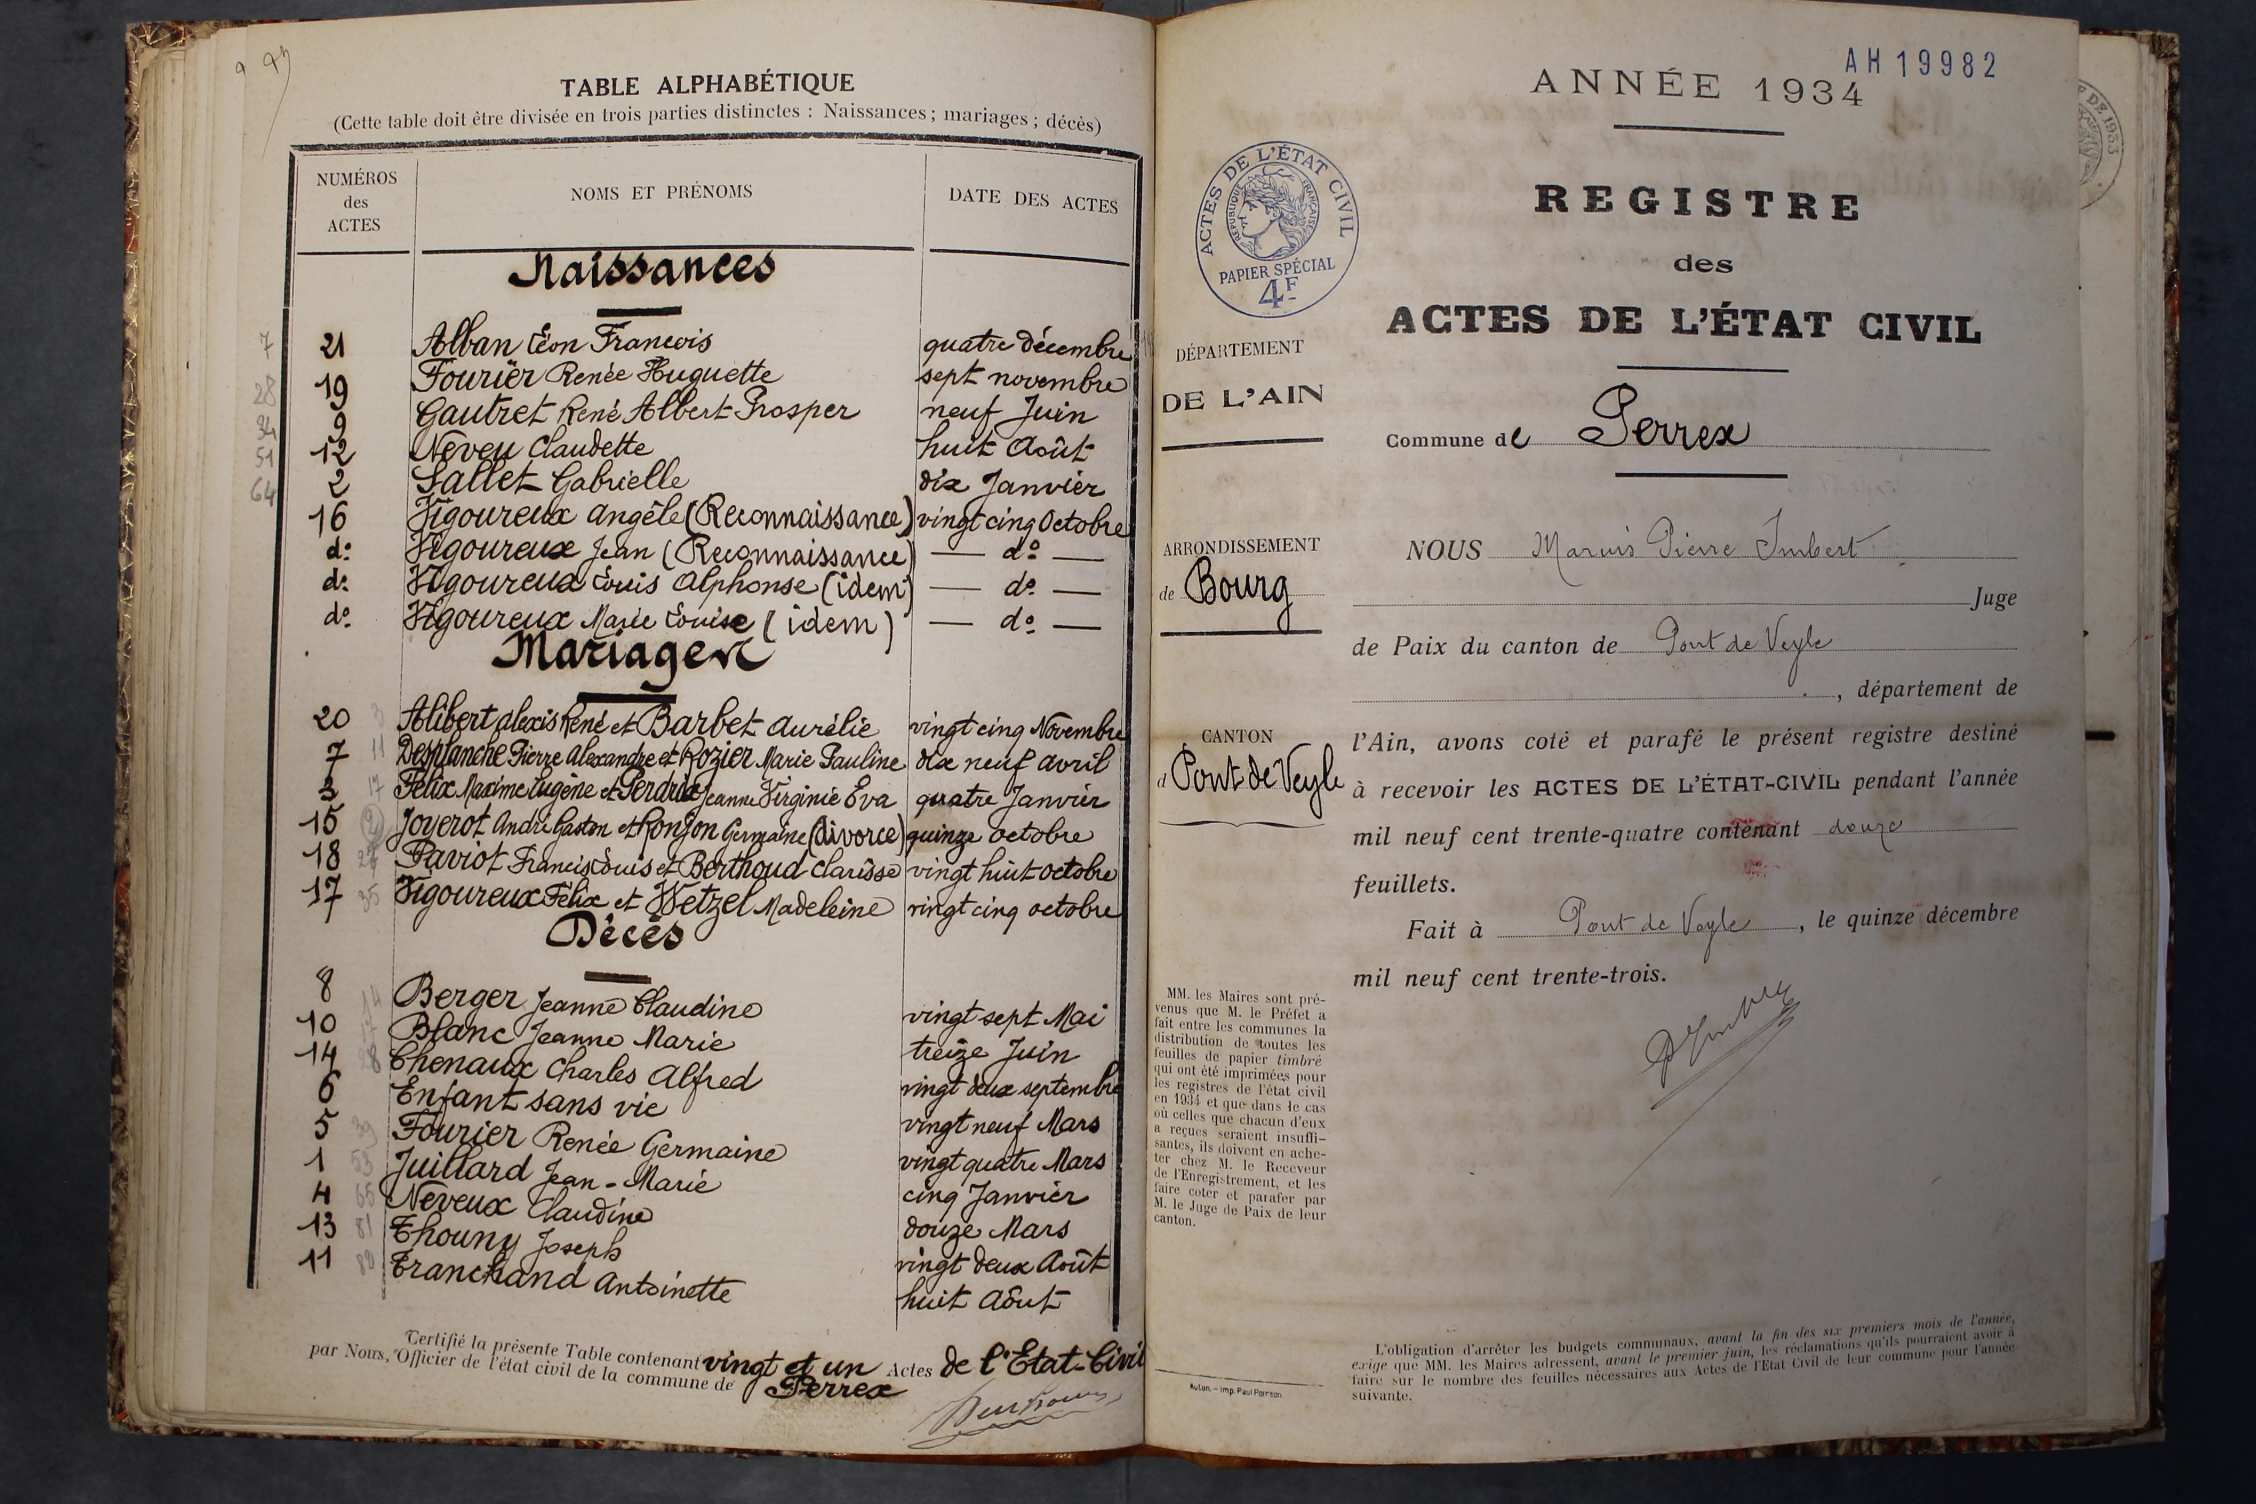 TABLE ALPHABÉTIQUE
(Cette table doit être divisée en trois parties distinctes : Naissances ; mariages ; décès)
NUMÉROS des ACTES NOMS ET PRÉNOMS DATE DES ACTES
Naissances
7 21 Alban Léon François quatre décembre
28 19 Fourier Renée Huguette sept novembre
34 9 Gautret René Albert Prosper neuf Juin
51 12 Neveu Claudette huit Août
64 2 Sallet Gabrielle dix Janvier
16 Vigoureux Angèle (Reconnaissance) vingt cinq Octobre
do Vigoureux Jean (Reconnaissance) — do —
do Vigoureux Louis Alphonse (idem) — do —
do Vigoureux Marie Louise (idem) — do —
Mariages
20 Alibert Alexis René et Barbet Aurélie vingt cinq Novembre
7 11 Desplanche Pierre Alexandre et Rozier Marie Pauline dix neuf avril
3 17 Felix Maxime Eugène et Perdrix Jeanne Virginie Eva quatre Janvier
15 Joyerot André Gaston et Ronjon Germaine (divorce) quinze octobre
18 Paviot Francis Louis et Berthoud Clarisse vingt huit octobre
17 35 Vigoureux Félix et Wetzel Madeleine vingt cinq octobre
Décès
8 14 Berger Jeanne Claudine vingt sept Mai
10 Blanc Jeanne Marie treize Juin
14 28 Chenaux Charles Alfred vingt deux septembre
6 Enfant sans vie vingt neuf Mars
5 39 Fourier Renée Germaine vingt quatre Mars
1 53 Juillard Jean-Marie cinq Janvier
4 65 Neveux Claudine douze Mars
13 81 Thouny Joseph vingt deux Août
11 Tranchand Antoinette huit Août
Certifié la présente Table contenant vingt et un Actes de l'Etat-Civil
par Nous, Officier de l'état civil de la commune de Perrex
AH 19982
ANNÉE 1934
REGISTRE
des
ACTES DE L'ÉTAT CIVIL
ACTES DE L'ÉTAT CIVIL
RÉPUBLIQUE FRANÇAISE
PAPIER SPÉCIAL
4F
DÉPARTEMENT
DE L'AIN
Commune de Perrex
ARRONDISSEMENT
de Bourg
CANTON
d Pont de Veyle
NOUS Marius Pierre Imbert
Juge
de Paix du canton de Pont de Veyle
, département de
l'Ain, avons coté et parafé le présent registre destiné
à recevoir les ACTES DE L'ÉTAT-CIVIL pendant l'année
mil neuf cent trente-quatre contenant douze
feuillets.
Fait à Pont de Veyle, le quinze décembre
mil neuf cent trente-trois.
MM. les Maires sont pré-
venus que M. le Préfet a
fait entre les communes la
distribution de toutes les
feuilles de papier timbré
qui ont été imprimées pour
les registres de l'état civil
en 1934 et que dans le cas
où celles que chacun d'eux
a reçues seraient insuffi-
santes, ils doivent en ache-
ter chez M. le Receveur
de l'Enregistrement, et les
faire coter et parafer par
M. le Juge de Paix de leur
canton.
Autun. — Imp. Paul Parriaud
L'obligation d'arrêter les budgets communaux, avant la fin des six premiers mois de l'année,
exige que MM. les Maires adressent, avant le premier juin, les réclamations qu'ils pourraient avoir à
faire sur le nombre des feuilles nécessaires aux Actes de l'Etat Civil de leur commune pour l'année
suivante.
DE 1933